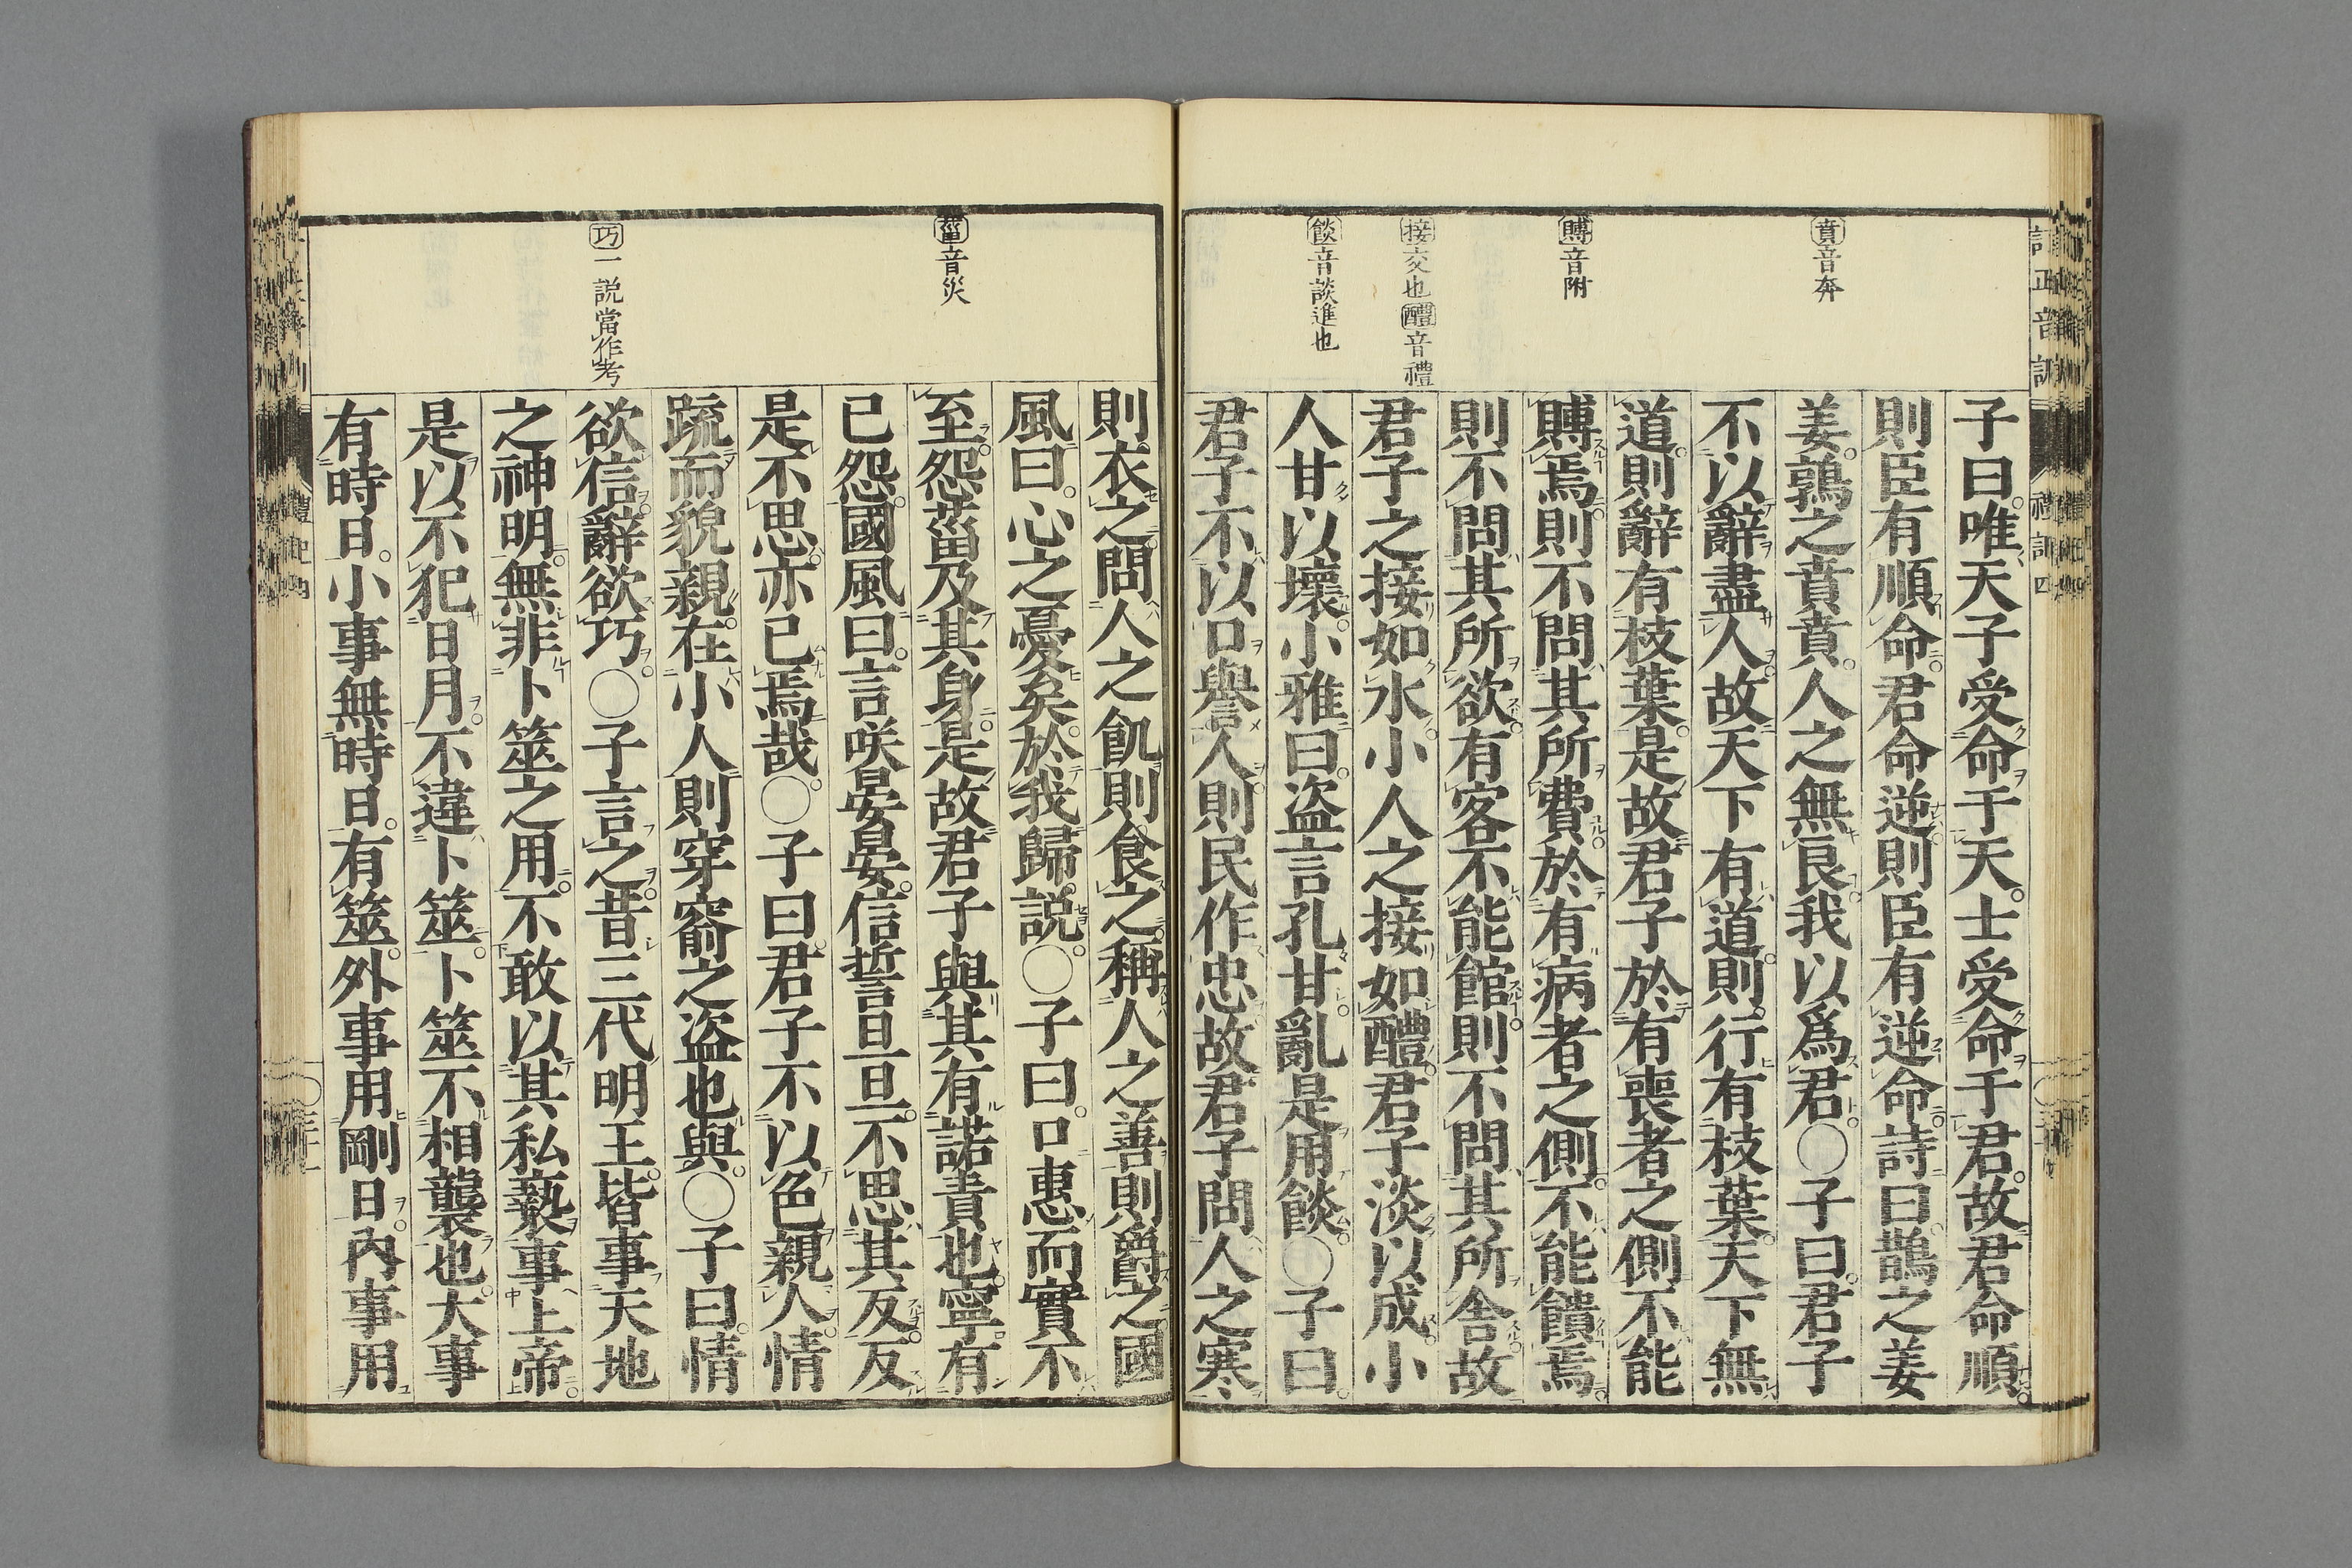 賁音奔
賻音附
接交也醴音禮
餤音談進也
子曰唯天子受命于天士受命于君故君命順
則臣有順命君命逆則臣有逆命詩曰鵲之姜
姜鶉之賁賁人之無良我以爲君○子曰君子
不以辭盡人故天下有道則行有枝葉天下無
道則辭有枝葉是故君子於有喪者之側不能
賻焉則不問其所費於有病者之側不能饋焉
則不問其所欲有客不能館則不問其所舍故
君子之接如水小人之接如醴君子淡以成小
人甘以壞小雅曰盜言孔甘亂是用餤○子曰
君子不以口譽人則民作忠故君子問人之寒
菑音災
巧一說當作考
則衣之問人之飢則食之稱人之善則爵之國
風曰心之憂矣於我歸說○子曰口惠而實不
至怨菑及其身是故君子與其有諾責也寧有
已怨國風曰言咲晏晏信誓旦旦不思其反反
是不思亦已焉哉○子曰君子不以色親人情
疏而貌親在小人則穿窬之盜也與○子曰情
欲信辭欲巧○子言之昔三代明王皆事天地
之神明無非卜筮之用不敢以其私褻事上帝
是以不犯日月不違卜筮卜筮不相襲也大事
有時日小事無時日有筮外事用剛日內事用